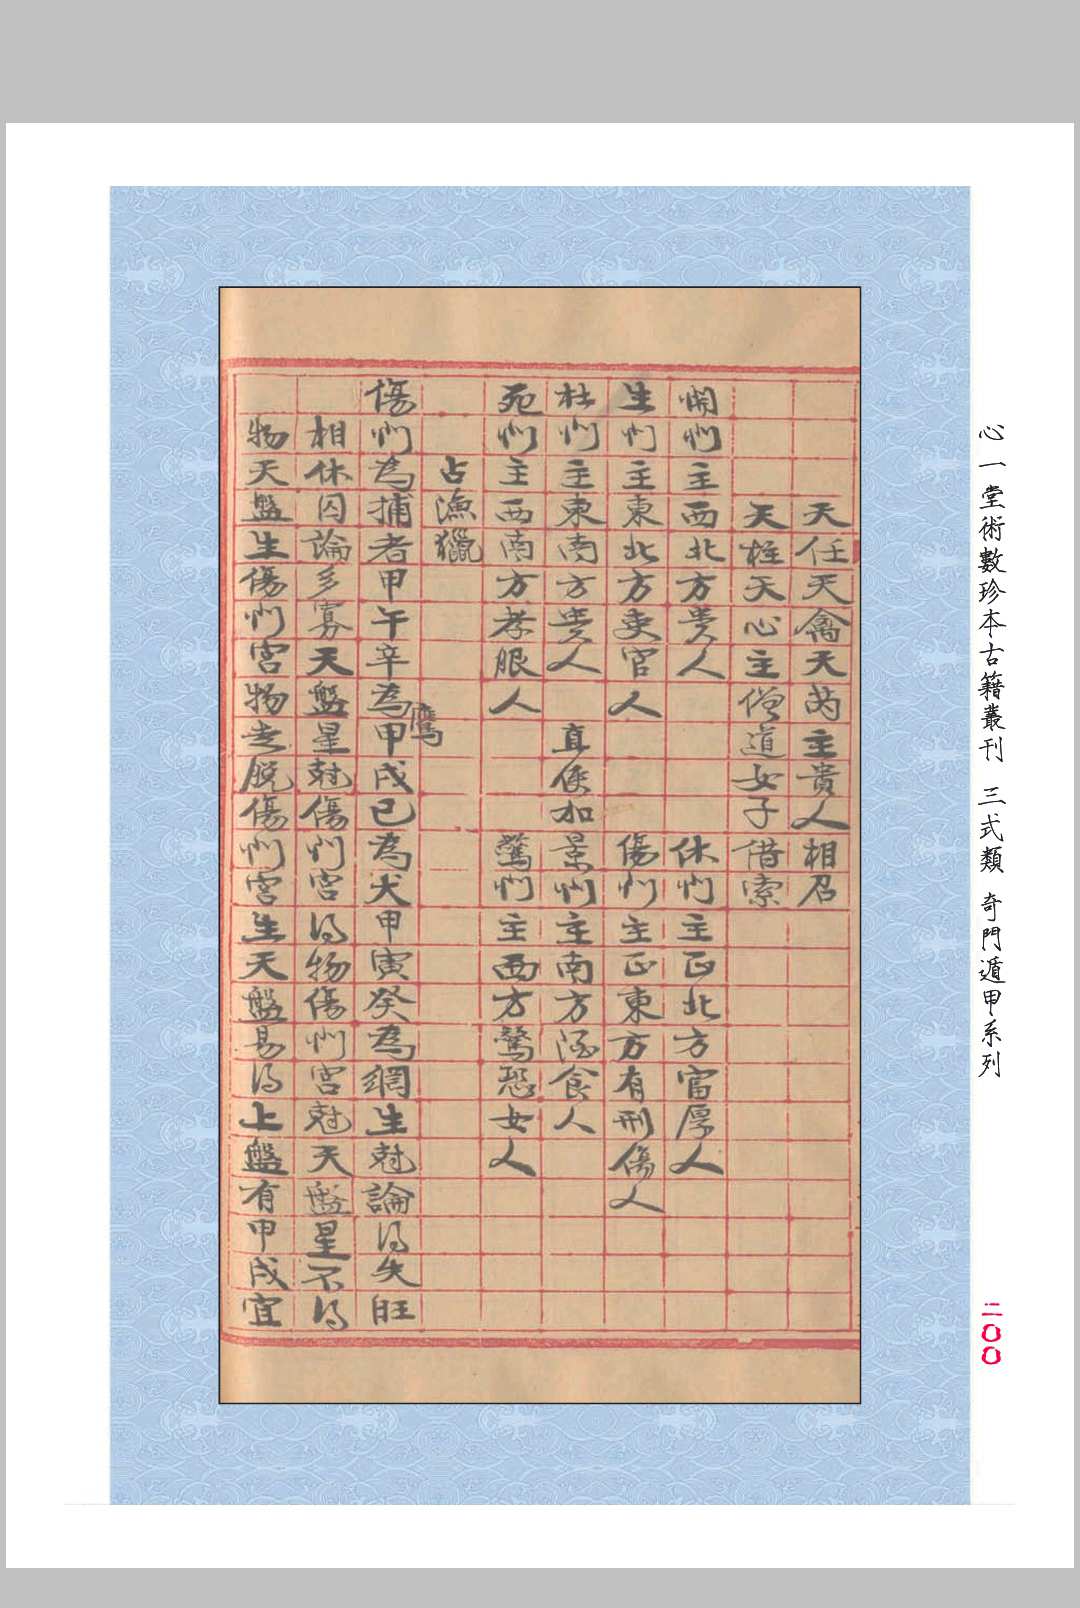 天任天禽天芮主貴人相召
天柱天心主僧道女子借索
開門主西北方貴人　休門主正北方富厚人
生門主東北方吏官人　傷門主正東方有刑傷人
杜門主東南方貴人　直使加景門主南方酒食人
死門主西南方孝服人　驚門主西方驚恐女人
占漁獵
傷門為捕者甲午辛為鷹甲戌己為犬甲寅癸為網生尅論得失旺
相休囚論多寡天盤星尅傷門宮得物傷門宮尅天盤星不得
物天盤生傷門宮物走脫傷門宮生天盤易得上盤有甲戌宜
心一堂術數珍本古籍叢刊　三式類　奇門遁甲系列
二〇〇